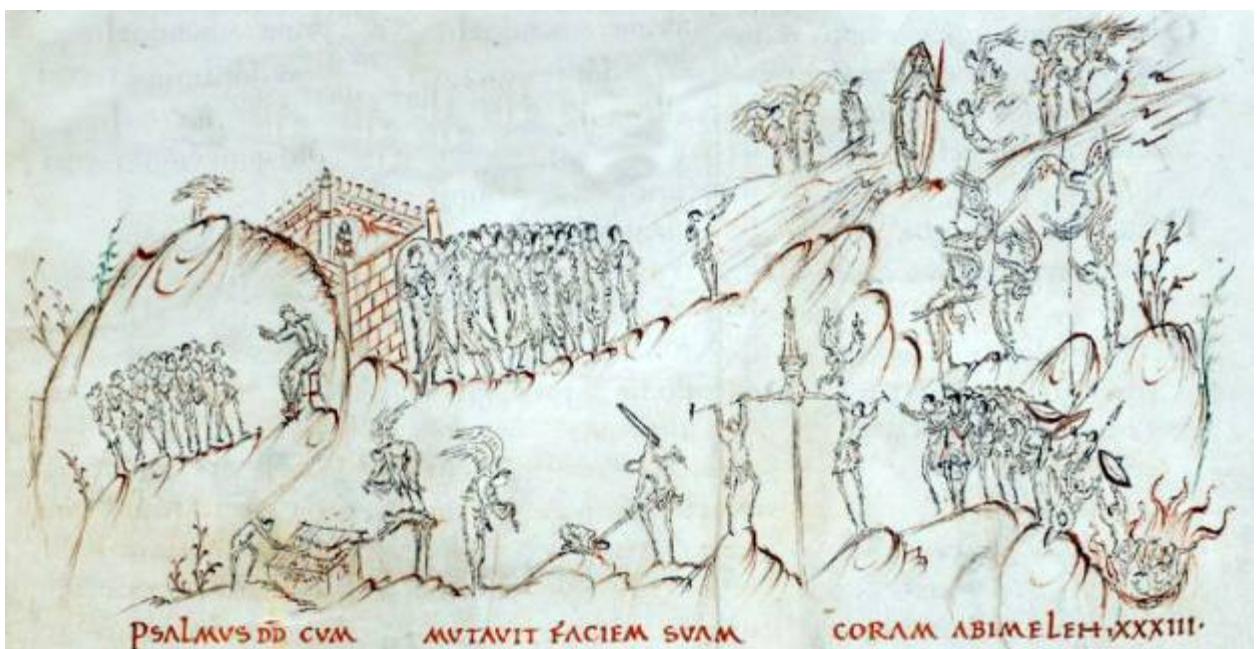 PSALMUS DD CUM MUTAVIT FACIEM SUAM CORAM ABIMELEH, XXXIII·